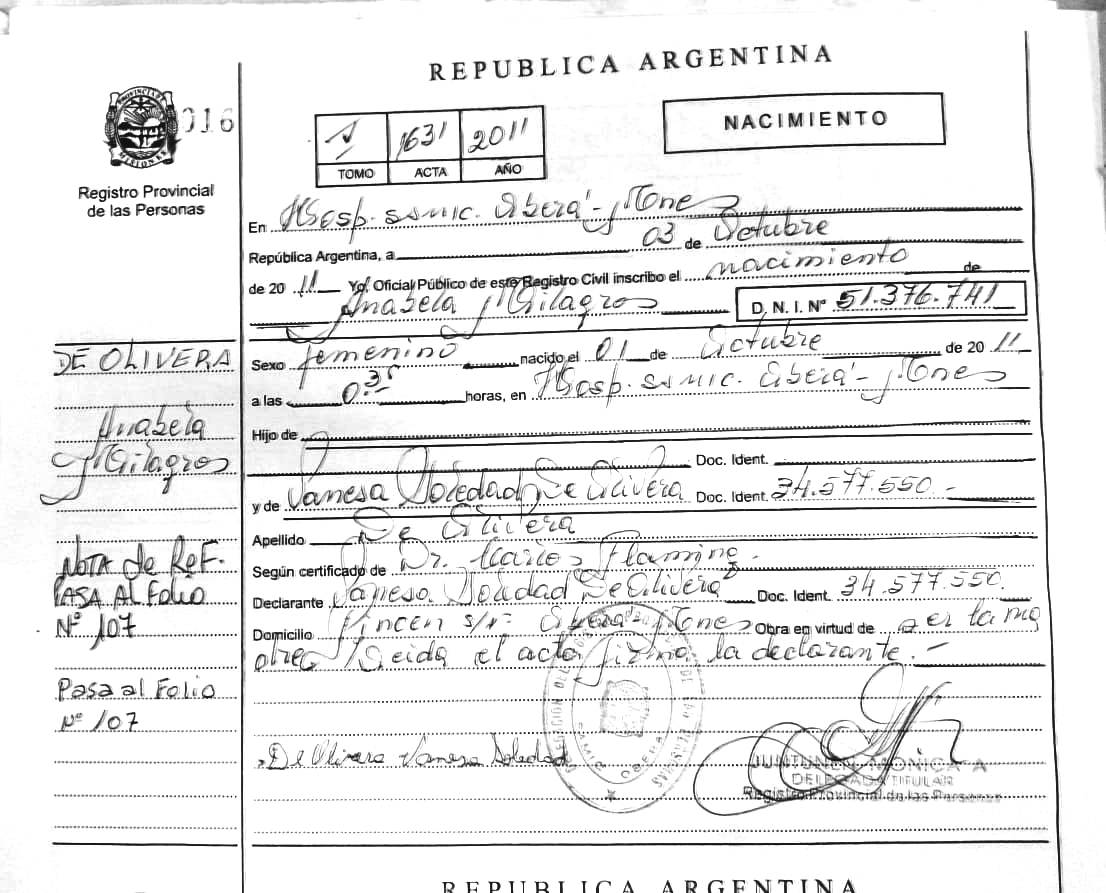 REPUBLICA ARGENTINA
016
PROVINCIA DE
MISIONES
Registro Provincial
de las Personas
1 1631 2011
TOMO ACTA AÑO
NACIMIENTO
En Hosp. SSMIC. Oberá - Mnes
República Argentina, a 03 de Octubre
de 20 11 Yo, Oficial Público de este Registro Civil inscribo el nacimiento de
Anabela Milagros D. N. I. Nº 51.376.741
DE OLIVERA
Anabela
Milagros
NOTA de ReF.
PASA AL Folio
Nº 107
Pasa al Folio
Nº 107
Sexo femenino nacido el 01 de Octubre de 20 11
a las 0.35 horas, en Hosp. SSMIC. Oberá - Mnes
Hijo de
Doc. Ident.
y de Vanesa Soledad De Olivera Doc. Ident. 34.577.550 -
Apellido De Olivera
Según certificado de Dr. Carlos Flamino.
Declarante Vanesa Soledad De Olivera Doc. Ident. 34.577.550
Domicilio s/nº Oberá - Mnes Obra en virtud de ser la ma
dre Leida el acta firma la declarante. -
De Olivera Vanesa Soledad
JUNTUNEN MONICA A
DELEGADA TITULAR
Registro Provincial de las Personas
REPUBLICA ARGENTINA